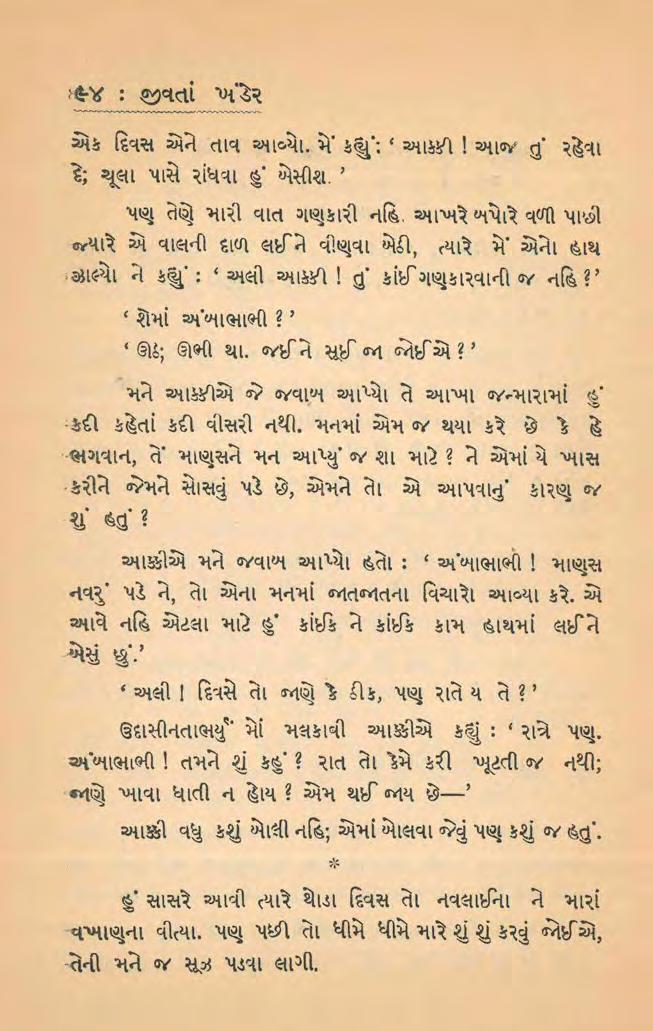 ૯૪ : જીવતાં ખંડેર
એક દિવસ એને તાવ આવ્યો. મેં કહ્યું: ‘ આક્કી ! આજ તું રહેવા
દે; ચૂલા પાસે રાંધવા હું બેસીશ. ’
પણ તેણે મારી વાત ગણકારી નહિ. આખરે બપોરે વળી પાછી
જ્યારે એ વાલની દાળ લઈને વીણવા બેઠી, ત્યારે મેં એનો હાથ
ઝાલ્યો ને કહ્યું : ‘ અલી આક્કી ! તું કાંઈ ગણકારવાની જ નહિ ? ’
‘ શેમાં અંબાભાભી ? ’
‘ ઊઠ; ઊભી થા. જઈને સૂઈ જા જોઈએ ? ’
મને આક્કીએ જે જવાબ આપ્યો તે આખા જન્મારામાં હું
કદી કહેતાં કદી વીસરી નથી. મનમાં એમ જ થયા કરે છે કે હે
ભગવાન, તેં માણસને મન આપ્યું જ શા માટે ? ને એમાં યે ખાસ
કરીને જેમને સોસવું પડે છે, એમને તો એ આપવાનું કારણ જ
શું હતું ?
આક્કીએ મને જવાબ આપ્યો હતો : ‘ અંબાભાભી ! માણસ
નવરું પડે ને, તો એના મનમાં જાતજાતના વિચારો આવ્યા કરે. એ
આવે નહિ એટલા માટે હું કાંઈક ને કાંઈક કામ હાથમાં લઈને
બેસું છું.’
‘ અલી ! દિવસે તો જાણે કે ઠીક, પણ રાતે ય તે ? ’
ઉદાસીનતાભર્યું મોં મલકાવી આક્કીએ કહ્યું : ‘ રાત્રે પણ.
અંબાભાભી ! તમને શું કહું ? રાત તો કેમે કરી ખૂટતી જ નથી;
જાણે ખાવા ધાતી ન હોય ? એમ થઈ જાય છે—’
આક્કી વધુ કશું બોલી નહિ; એમાં બોલવા જેવું પણ કશું જ હતું.
*
હું સાસરે આવી ત્યારે થોડા દિવસ તો નવલાઈના ને મારાં
વખાણના વીત્યા. પણ પછી તો ધીમે ધીમે મારે શું શું કરવું જોઈએ,
તેની મને જ સૂઝ પડવા લાગી.